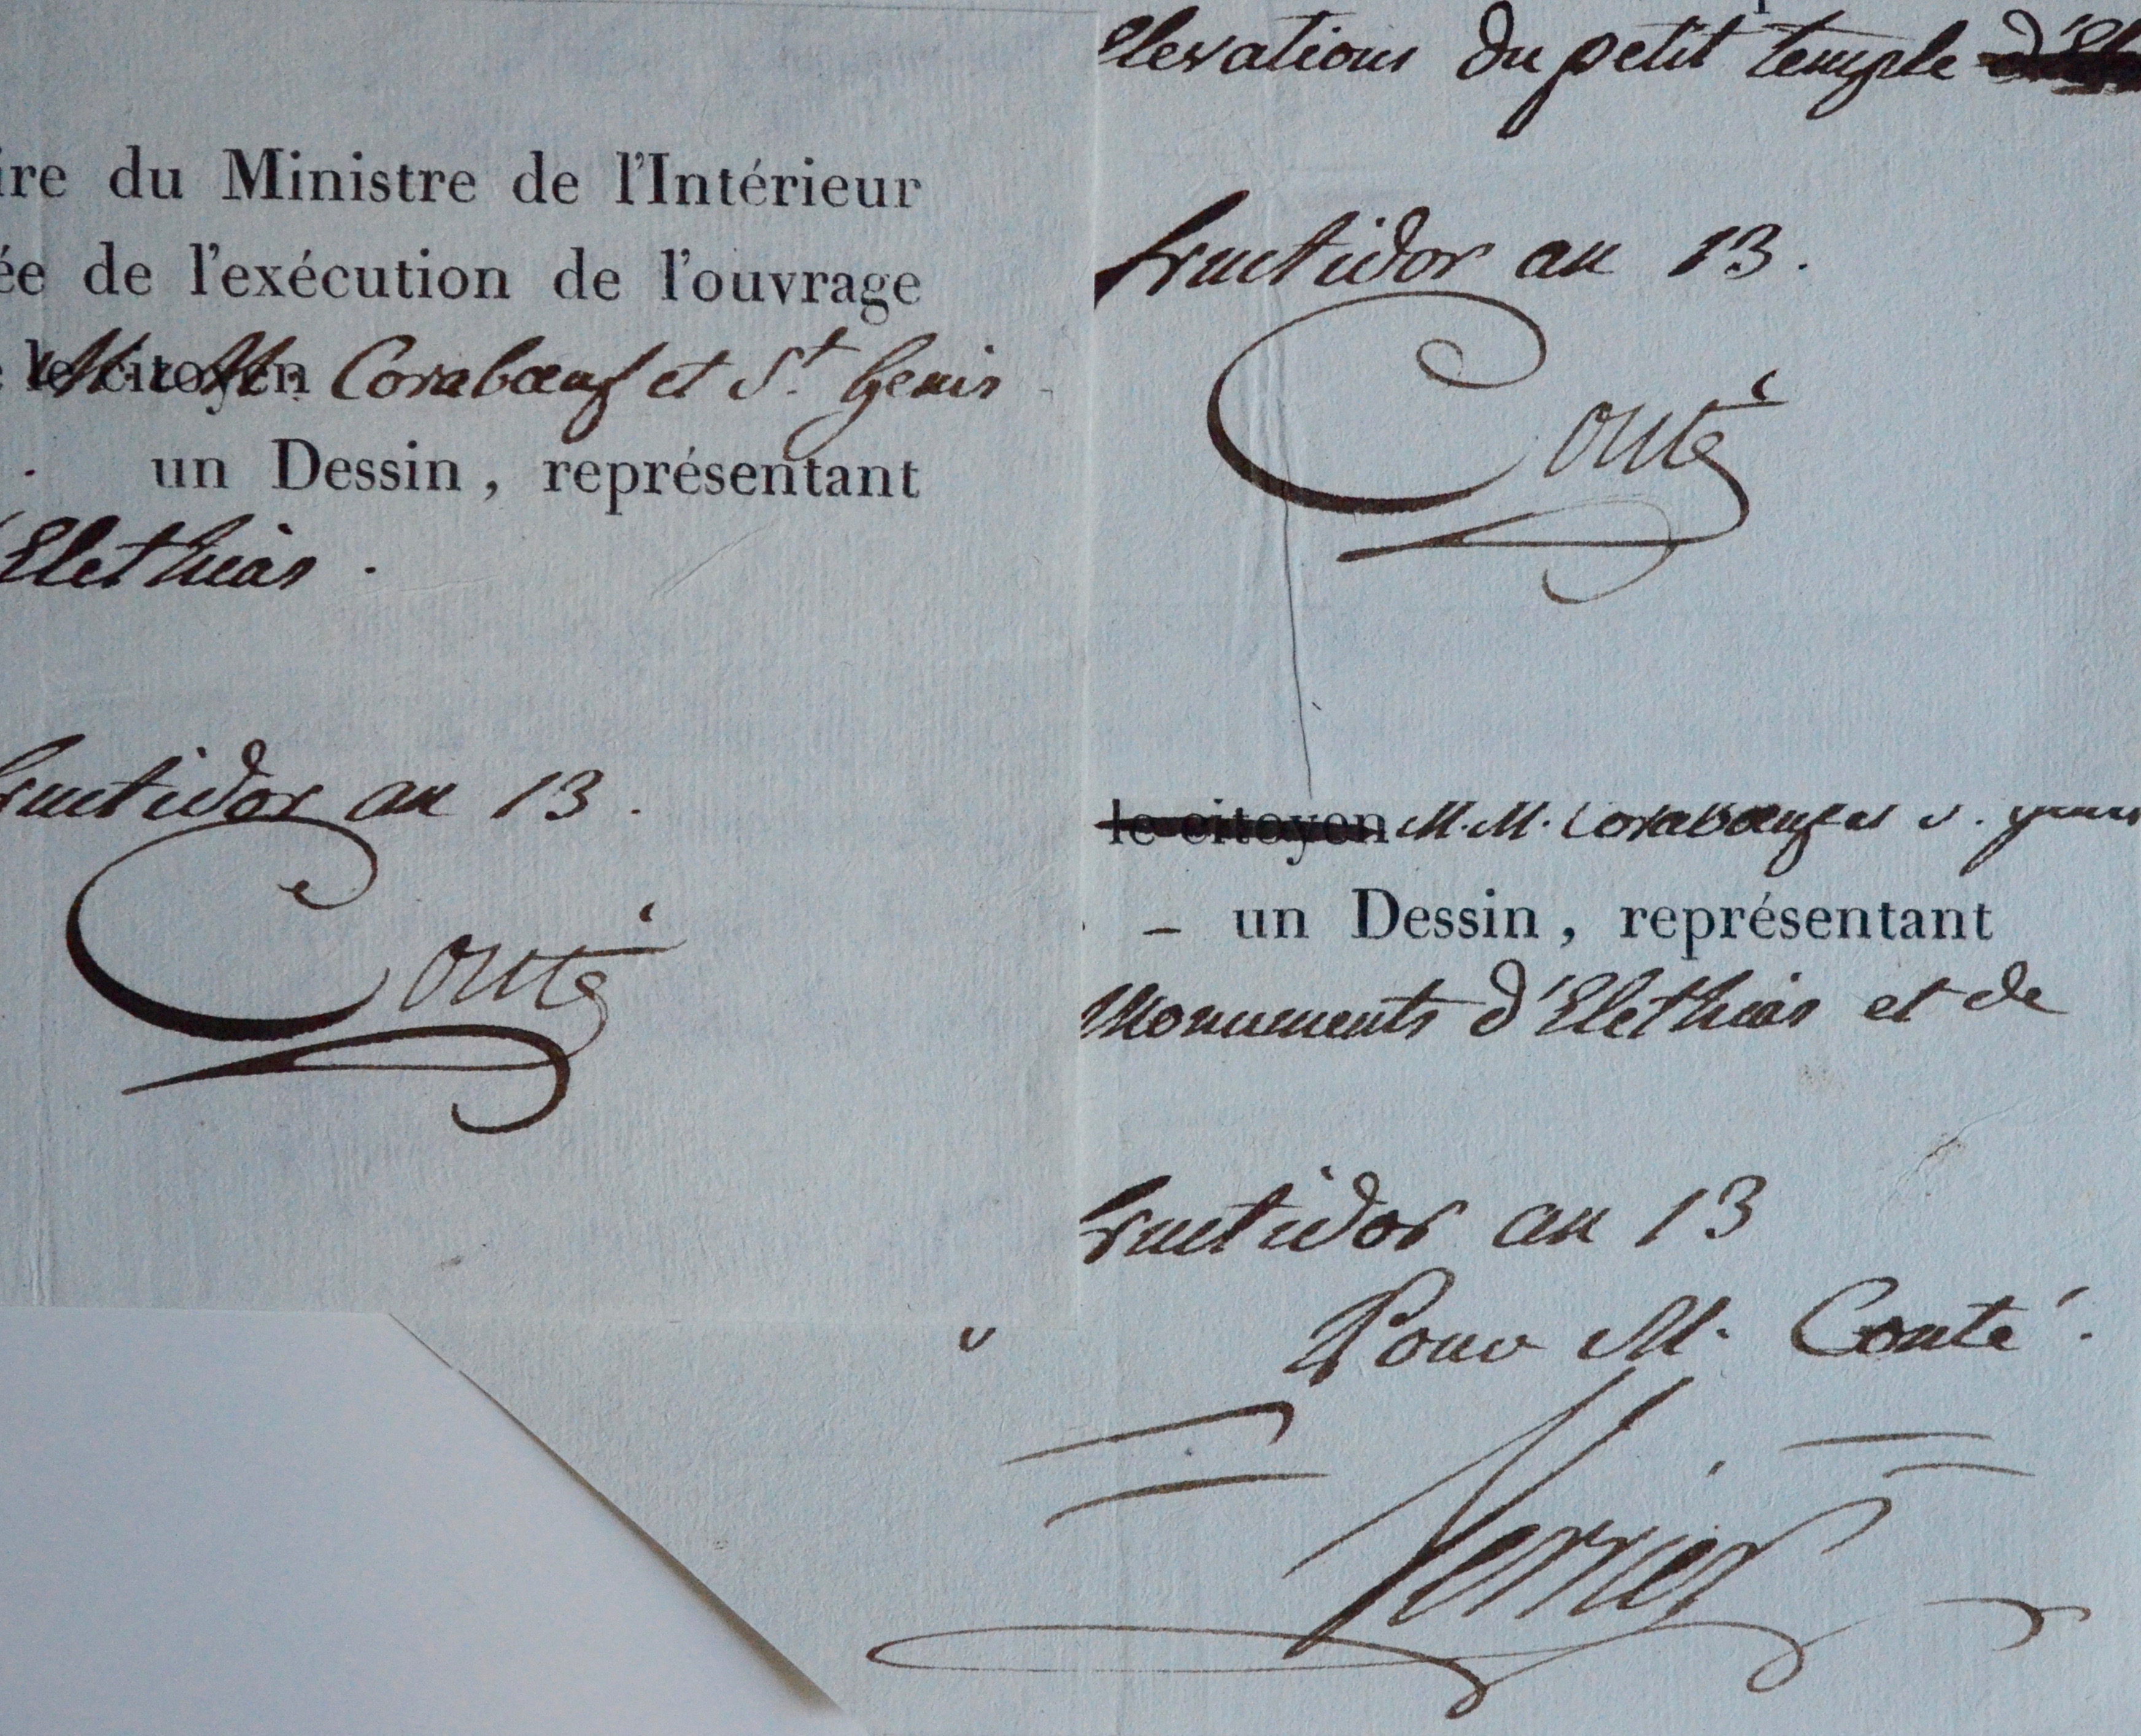 ire du Ministre de l'Intérieur
ée de l'exécution de l'ouvrage
le citoyen M. M. Coraboeuf et St. Genis
un Dessin, représentant
Elethias.
fructidor an 13.
Conté
Elevations du petit temple
fructidor an 13.
Conté
le citoyen M. M. Coraboeuf et
un Dessin, représentant
Monuments d'Elethias et de
fructidor an 13
Pour M. Conté.